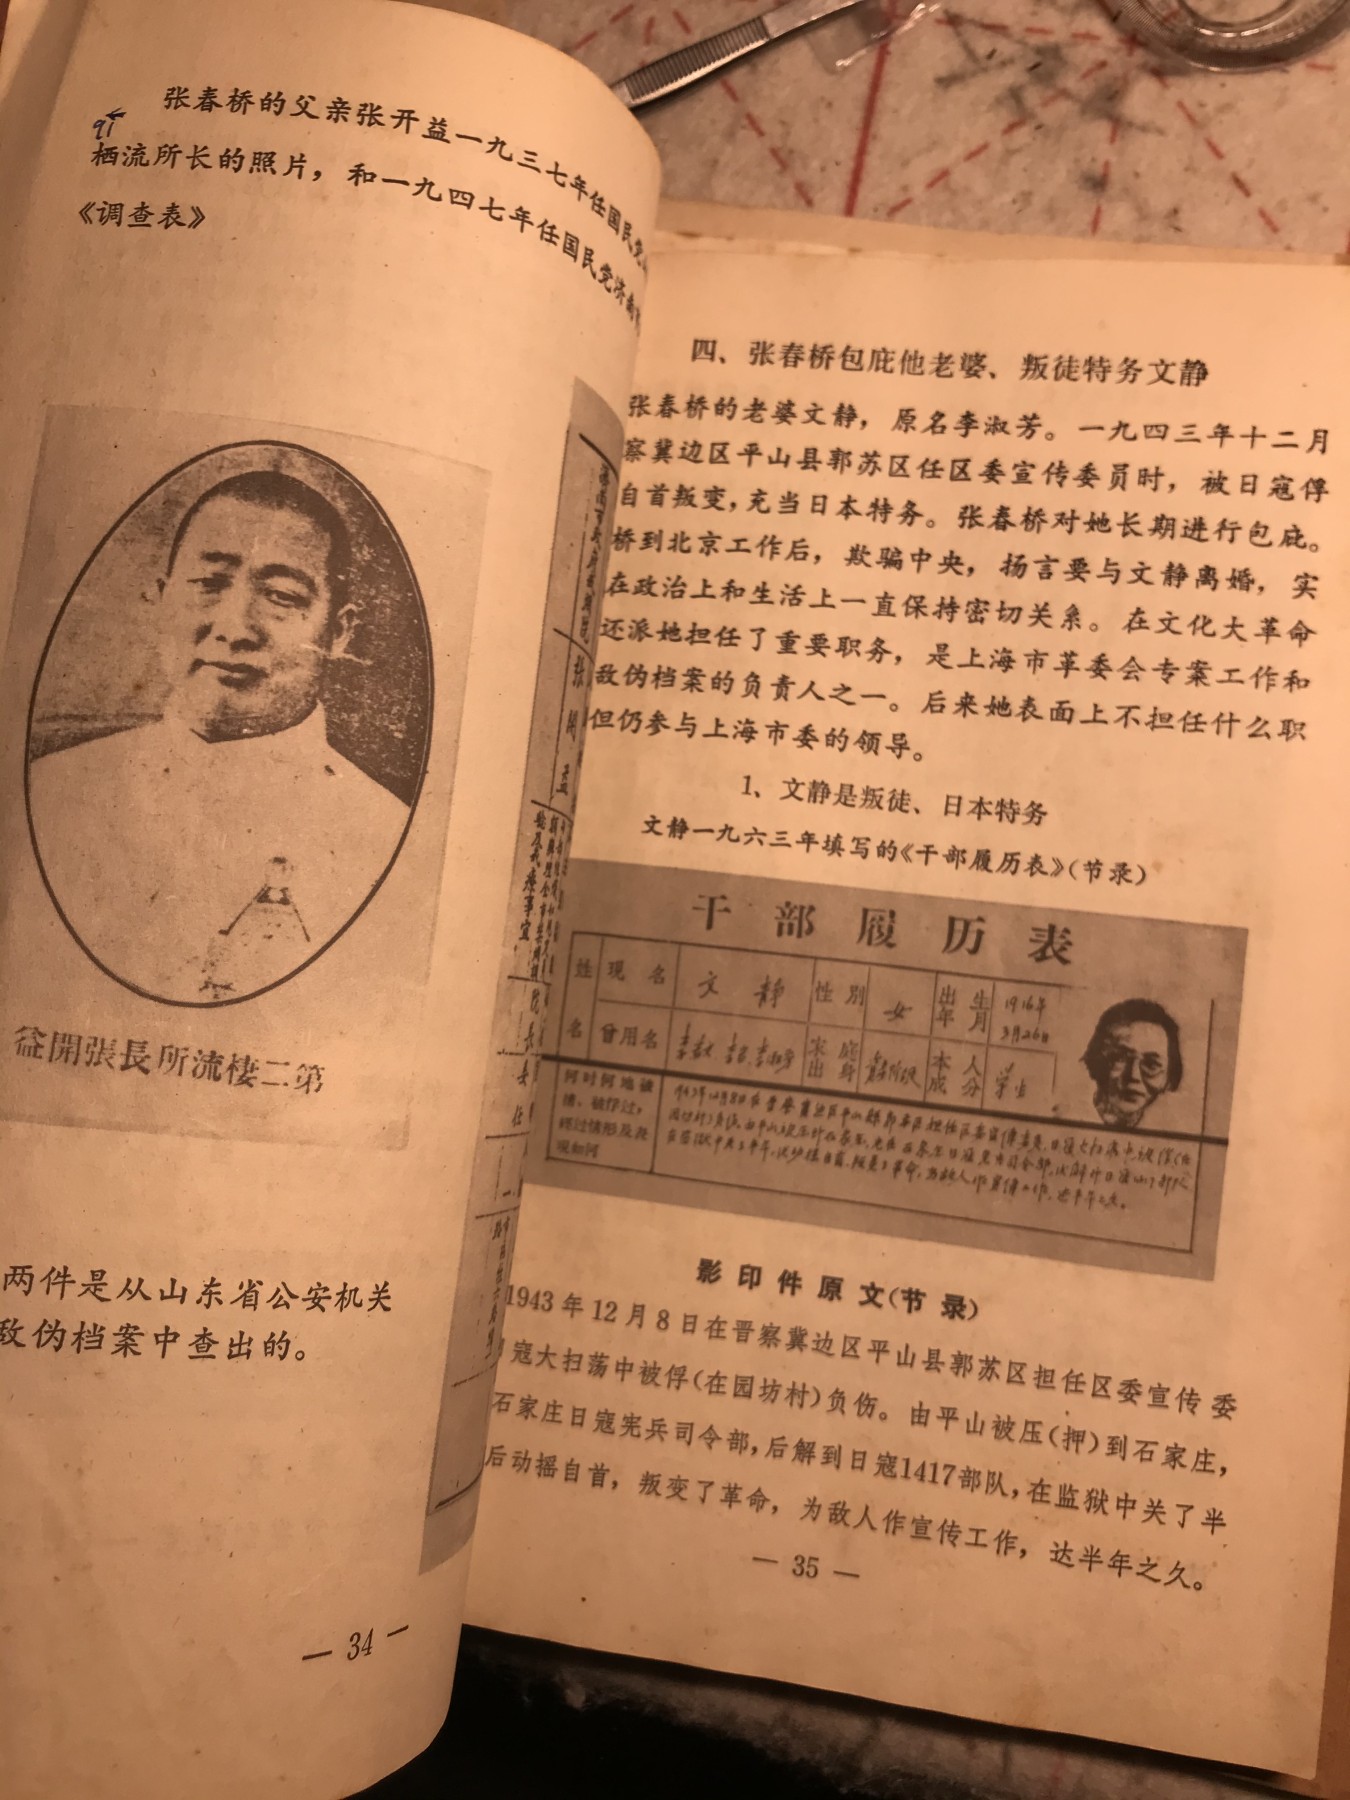 张春桥的父亲张开益一九三七年任国民党
栖流所长的照片，和一九四七年任国民党济南
《调查表》
益開張長所流棲二第
张開益
两件是从山东省公安机关
敌伪档案中查出的。
— 34 —
四、张春桥包庇他老婆、叛徒特务文静
张春桥的老婆文静，原名李淑芳。一九四三年十二月
察冀边区平山县郭苏区任区委宣传委员时，被日寇俘
自首叛变，充当日本特务。张春桥对她长期进行包庇。
桥到北京工作后，欺骗中央，扬言要与文静离婚，实
在政治上和生活上一直保持密切关系。在文化大革命
还派她担任了重要职务，是上海市革委会专案工作和
敌伪档案的负责人之一。后来她表面上不担任什么职
但仍参与上海市委的领导。
1、文静是叛徒、日本特务
文静一九六三年填写的《干部履历表》（节录）
干部履历表
姓名 现名 文静 性别 女 出生年月 1916年3月26日
曾用名 家庭出身 本人成分 学生
何时何地被
影印件原文（节录）
1943年12月8日在晋察冀边区平山县郭苏区担任区委宣传委
寇大扫荡中被俘（在园坊村）负伤。由平山被压（押）到石家庄，
石家庄日寇宪兵司令部，后解到日寇1417部队，在监狱中关了半
后动摇自首，叛变了革命，为敌人作宣传工作，达半年之久。
— 35 —